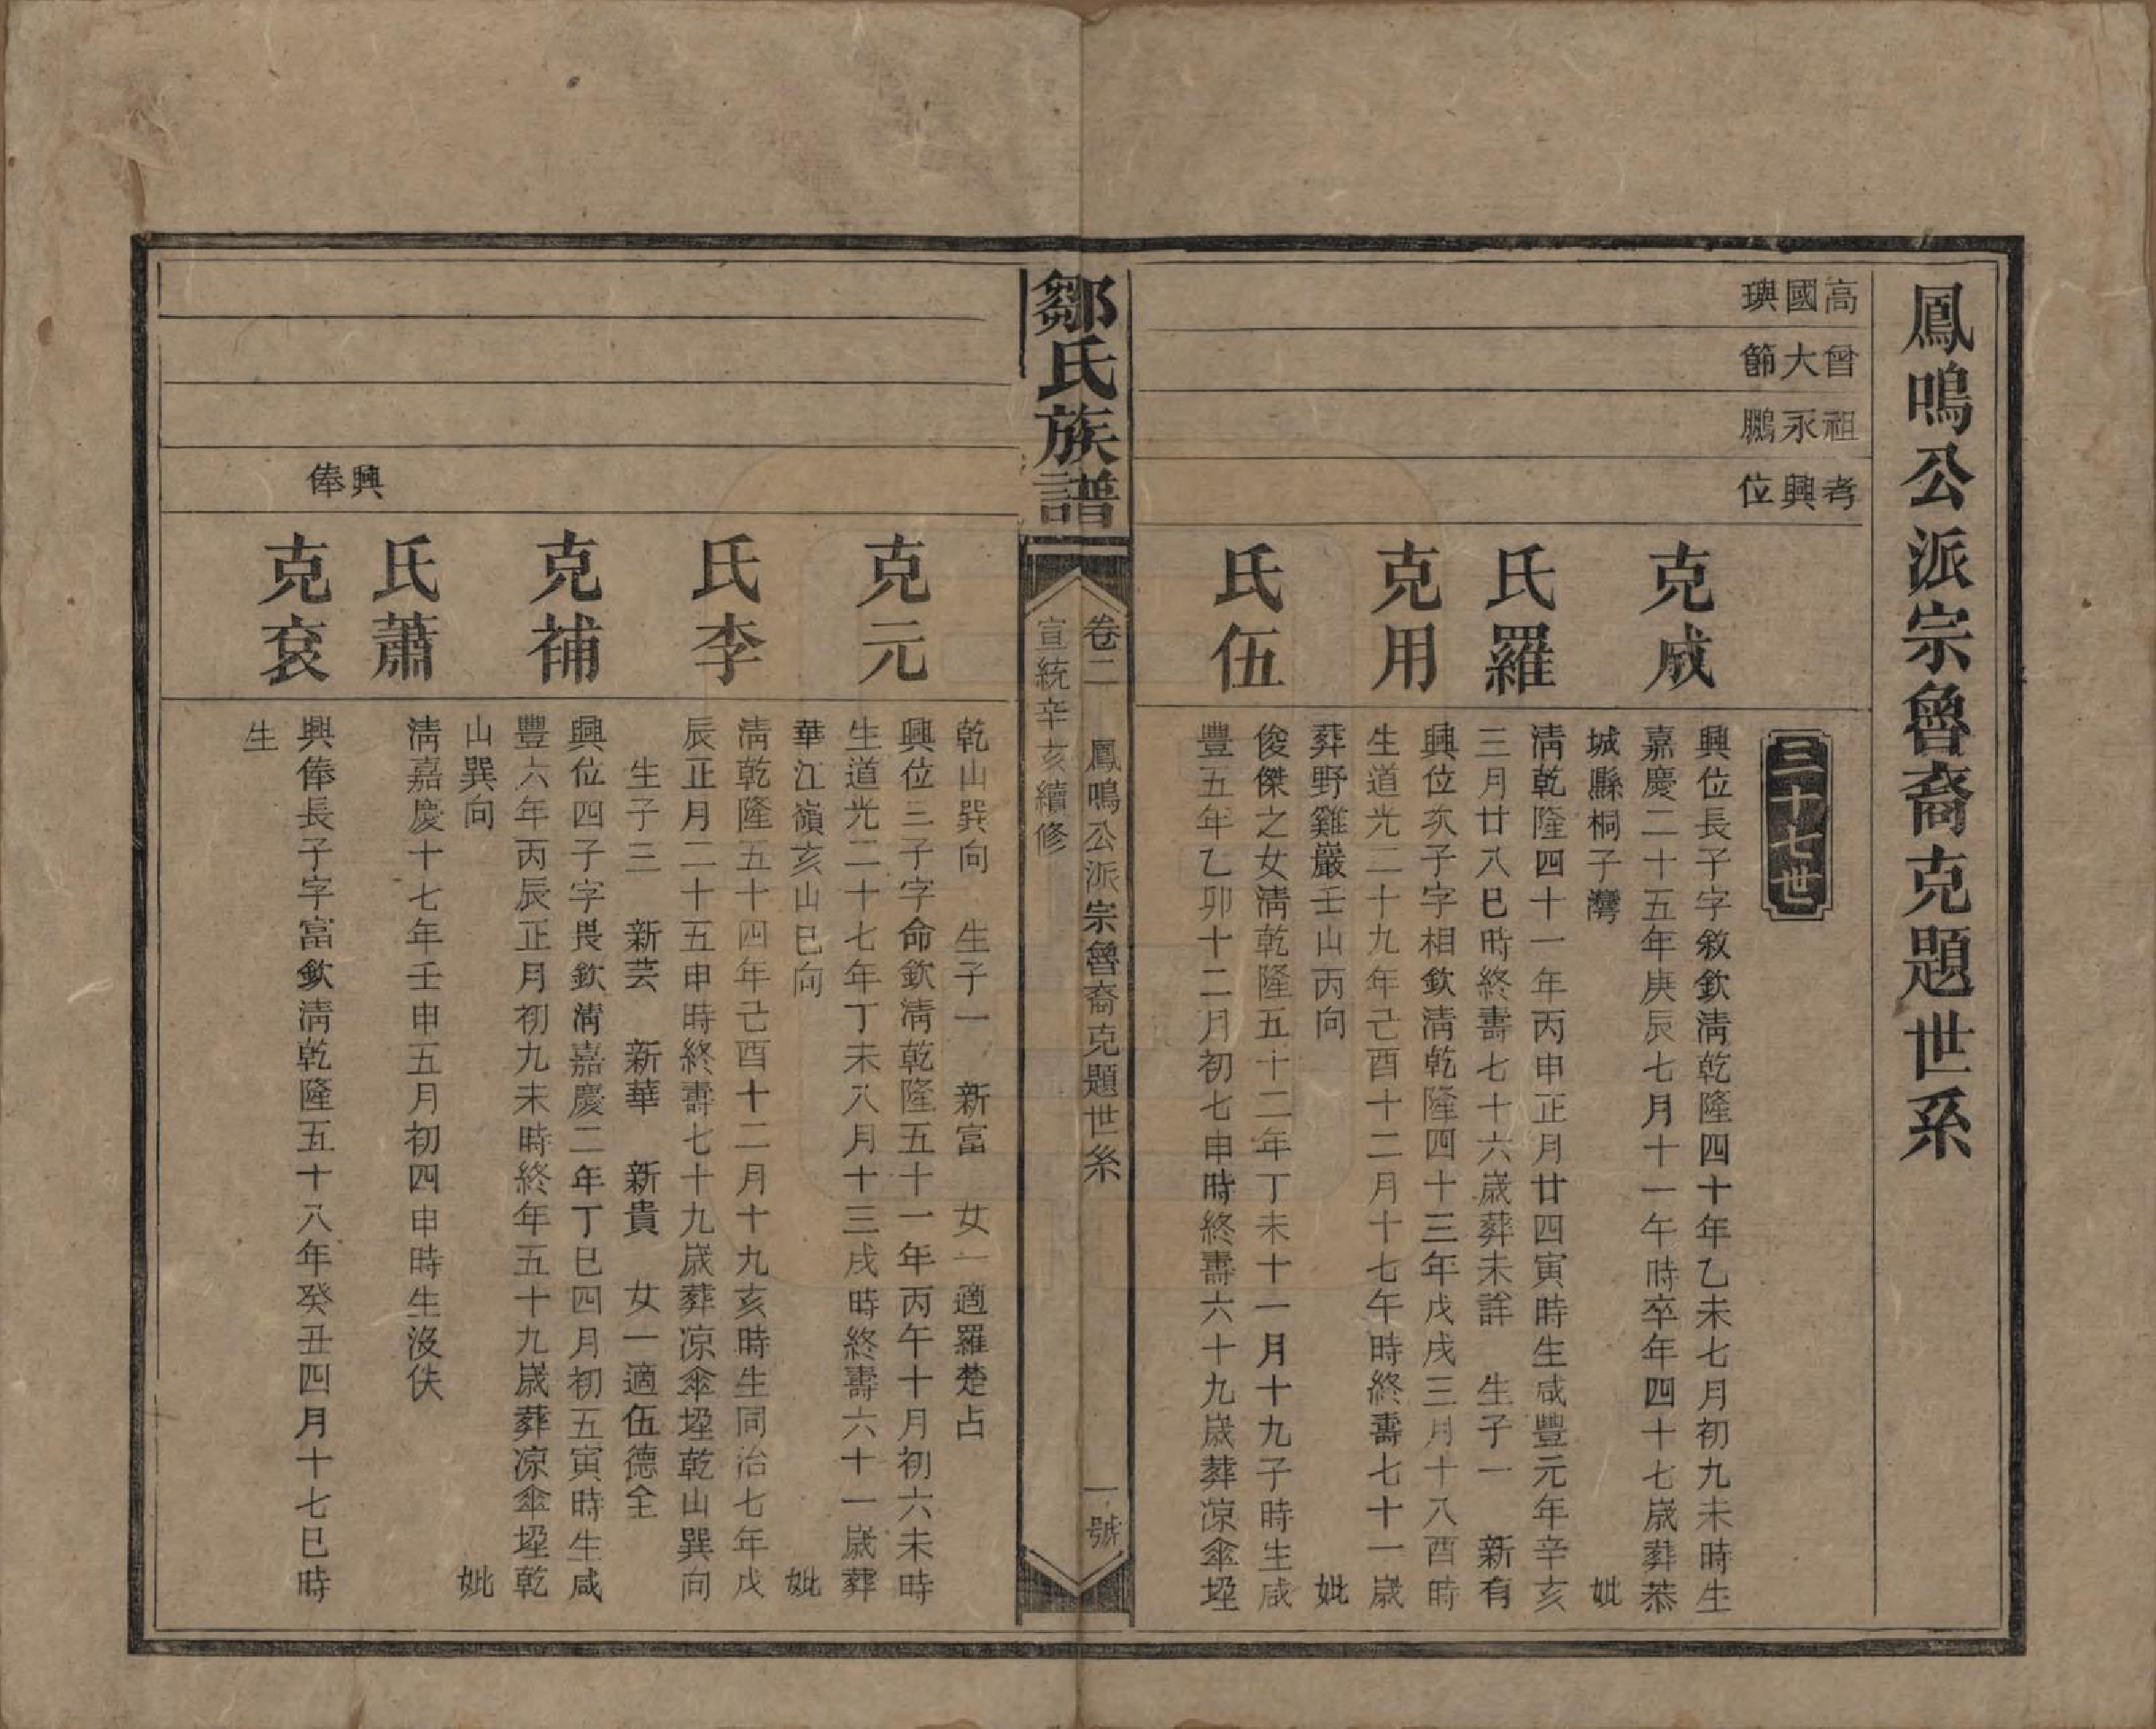 鳳鳴公派宗魯裔克題世系
高國璵
曾大節
祖永鵬
考興位
三十七世
克成
興位長子字敘欽淸乾隆四十年乙未七月初九未時生
嘉慶二十五年庚辰七月十一午時卒年四十七歲葬恭
城縣桐子灣 妣
氏羅
淸乾隆四十一年丙申正月廿四寅時生咸豐元年辛亥
三月廿八巳時終壽七十六歲葬未詳 生子一 新有
克用
興位次子字相欽淸乾隆四十三年戊戌三月十八酉時
生道光二十九年己酉十二月十七午時終壽七十一歲
葬野雞巖壬山丙向 妣
氏伍
俊傑之女淸乾隆五十二年丁未十一月十九子時生咸
豐五年乙卯十二月初七申時終壽六十九歲葬凉傘堙
鄒氏族譜
卷二 鳳鳴公派宗魯裔克題世系 一號
宣統辛亥續修
乾山巽向 生子一 新富 女一適羅楚占
克元
興位三子字命欽淸乾隆五十一年丙午十月初六未時
生道光二十七年丁未八月十三戌時終壽六十一歲葬
華江嶺亥山巳向 妣
氏李
淸乾隆五十四年己酉十二月十九亥時生同治七年戊
辰正月二十五申時終壽七十九歲葬凉傘堙乾山巽向
生子三 新芸 新華 新貴 女一適伍德全
克補
興位四子字畏欽淸嘉慶二年丁巳四月初五寅時生咸
豐六年丙辰正月初九未時終年五十九歲葬凉傘堙乾
山巽向 妣
氏蕭
淸嘉慶十七年壬申五月初四申時生沒佚
興俸
克袞
興俸長子字富欽淸乾隆五十八年癸丑四月十七巳時
生